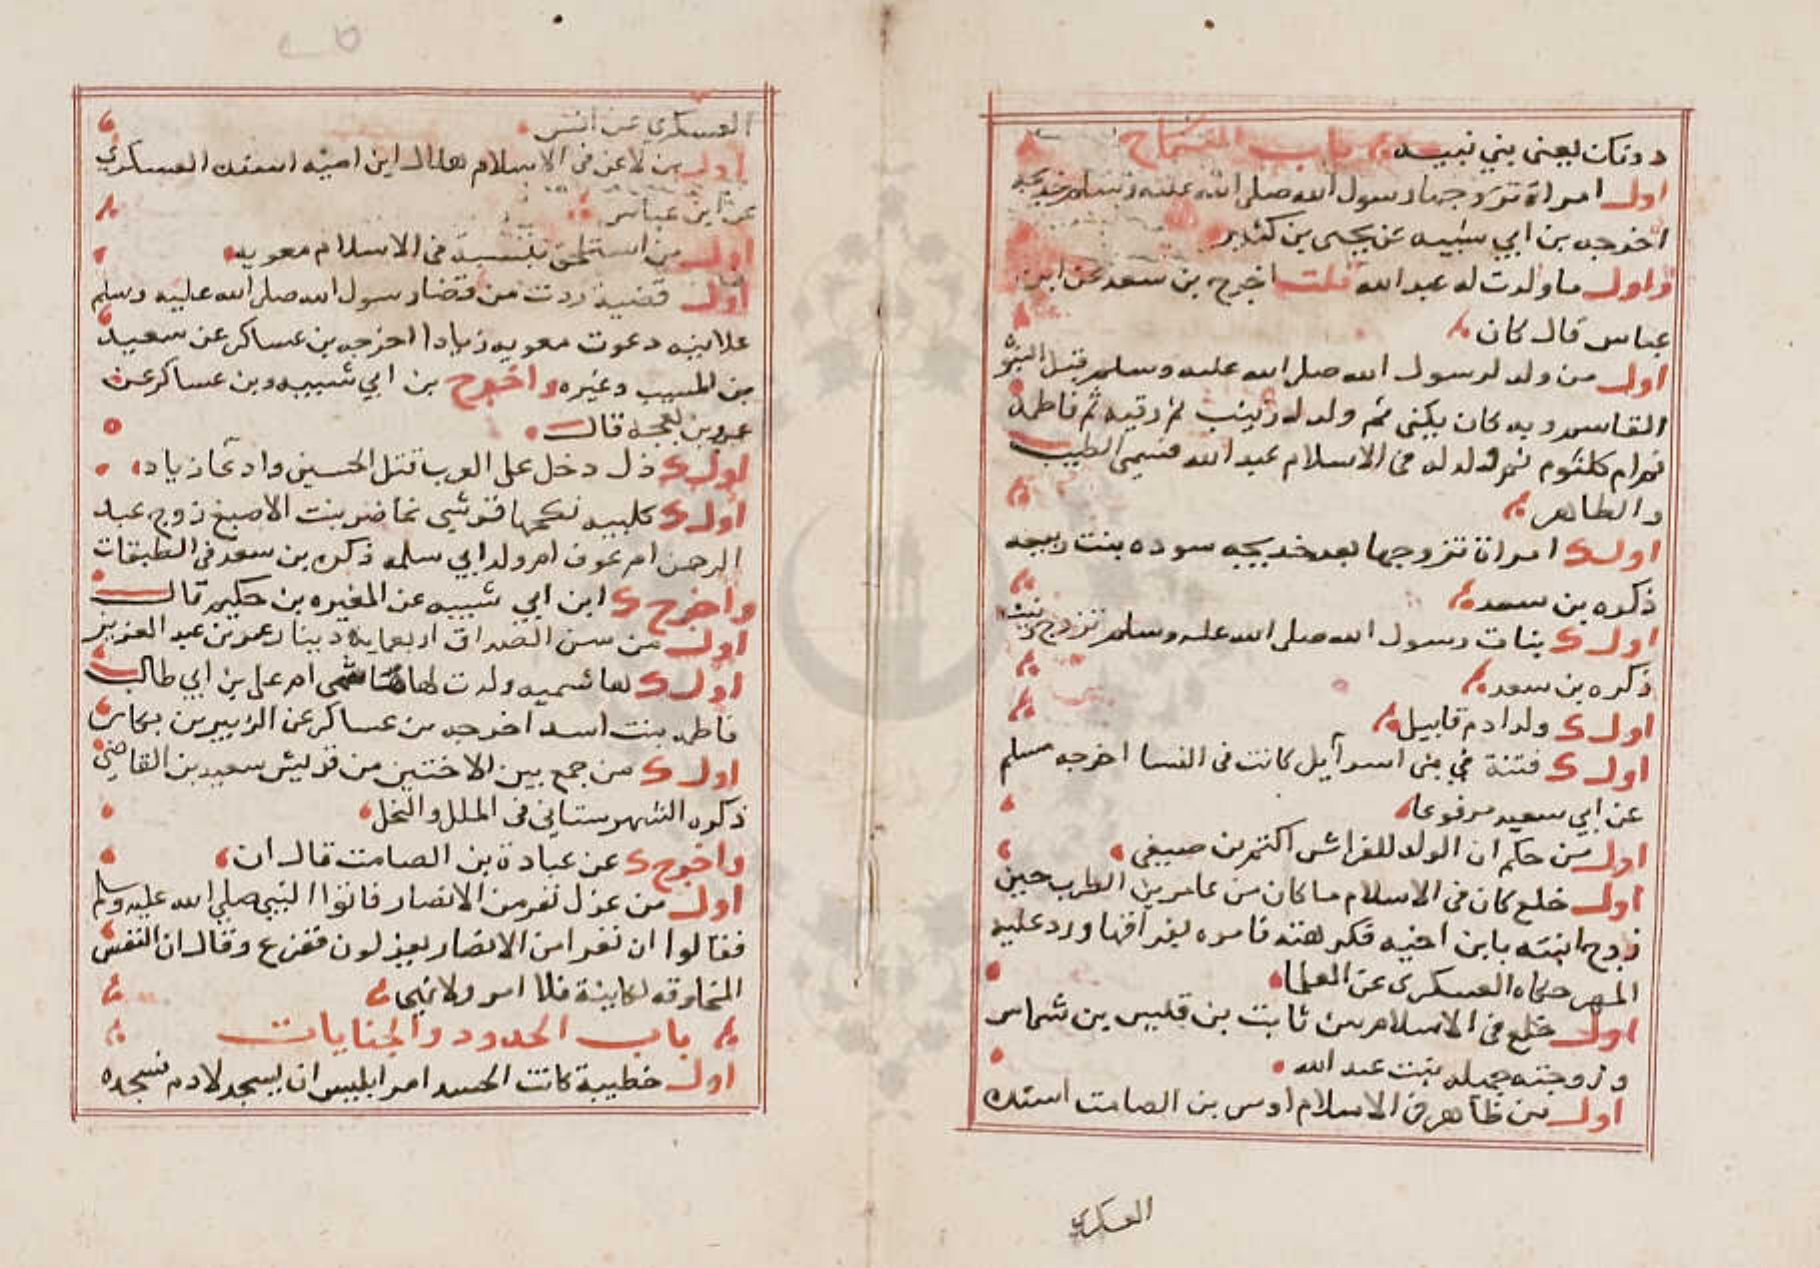 دونك يعنى بني نبيه باب النكاح
اول امراة تزوجها رسول الله صلى الله عليه وسلم خديجه
اخرجه بن ابي شيبه عن يحيى بن كثير
واول ما ولدت له عبد الله قلت اخرج بن سعد عن ابن
عباس قال كان
اول من ولد لرسول الله صلى الله عليه وسلم قبل النبوة
القاسم وبه كان يكنى ثم ولد له زينب ثم رقيه ثم فاطمة
ثم ام كلثوم ثم ولد له فى الاسلام عبد الله فسمى الطيب
والطاهر
اول امراة تزوجها بعد خديجه سوده بنت ربيعه
ذكره بن سعد
اول بنات رسول الله صلى الله عليه وسلم تزوج زينب
ذكره بن سعد
اول ولد ادم قابيل
اول فتنة في بنى اسرآيل كانت فى النسا اخرجه مسلم
عن ابي سعيد مرفوعا
اول من حكم ان الولد للفراش اكثم بن صيفى
اول خلع كان فى الاسلام ما كان من عامر بن الظرب حين
زوج ابنته بابن اخيه فكرهته فامره بفراقها ورد عليه
المهر حكاه العسكرى عن العلما
اول خلع فى الاسلام من ثابت بن قليس بن شماس
وزوجته جميله بنت عبد الله
اول من ظاهر فى الاسلام اوس بن الصامت اسنده
العسكري
العسكري عن انس
اول من لاعن فى الاسلام هلال ابن اميه اسنده العسكري
عن ابن عباس
اول من استلحق بنسبه فى الاسلام معويه
اول قضية ردت من قضا رسول الله صلى الله عليه وسلم
علانيه دعوت معويه زيادا اخرجه بن عساكر عن سعيد
بن المسيب وغيره واخرج بن ابي شيبه وبن عساكر عن
عمرو بن نعجه قال
اول ذل دخل على العرب قتل الحسين وادعا زياد
اول كلبيه نكحها قرشي تماضر بنت الاصبغ زوج عبد
الرحمن ام عوف ام ولد ابي سلمه ذكره بن سعد فى الطبقات
واخرج ابن ابي شيبه عن المغيره بن حكيم قال
اول من سن الصداق اربعماية دينار عمر بن عبد العزيز
اول هاشميه ولدت لها هاشمى ام على بن ابي طالب
فاطمه بنت اسد اخرجه من عساكر عن الزبير بن بكاس
اول من جمع بين الاختين من قريش سعيد بن القاضي
ذكره الشهرستاني فى الملل والنحل
واخرج عن عبادة بن الصامت قال ان
اول من عزل نفر من الانصار فاتوا النبي صلي الله عليه وسلم
فقالوا ان نفرا من الانصار يعزلون ففزع وقال ان النفس
المخلوقه لكاينة فلا امر ولا نهى
باب الحدود والجنايات
اول خطيبة كانت الحسد امر ابليس ان يسجد لادم فسجده